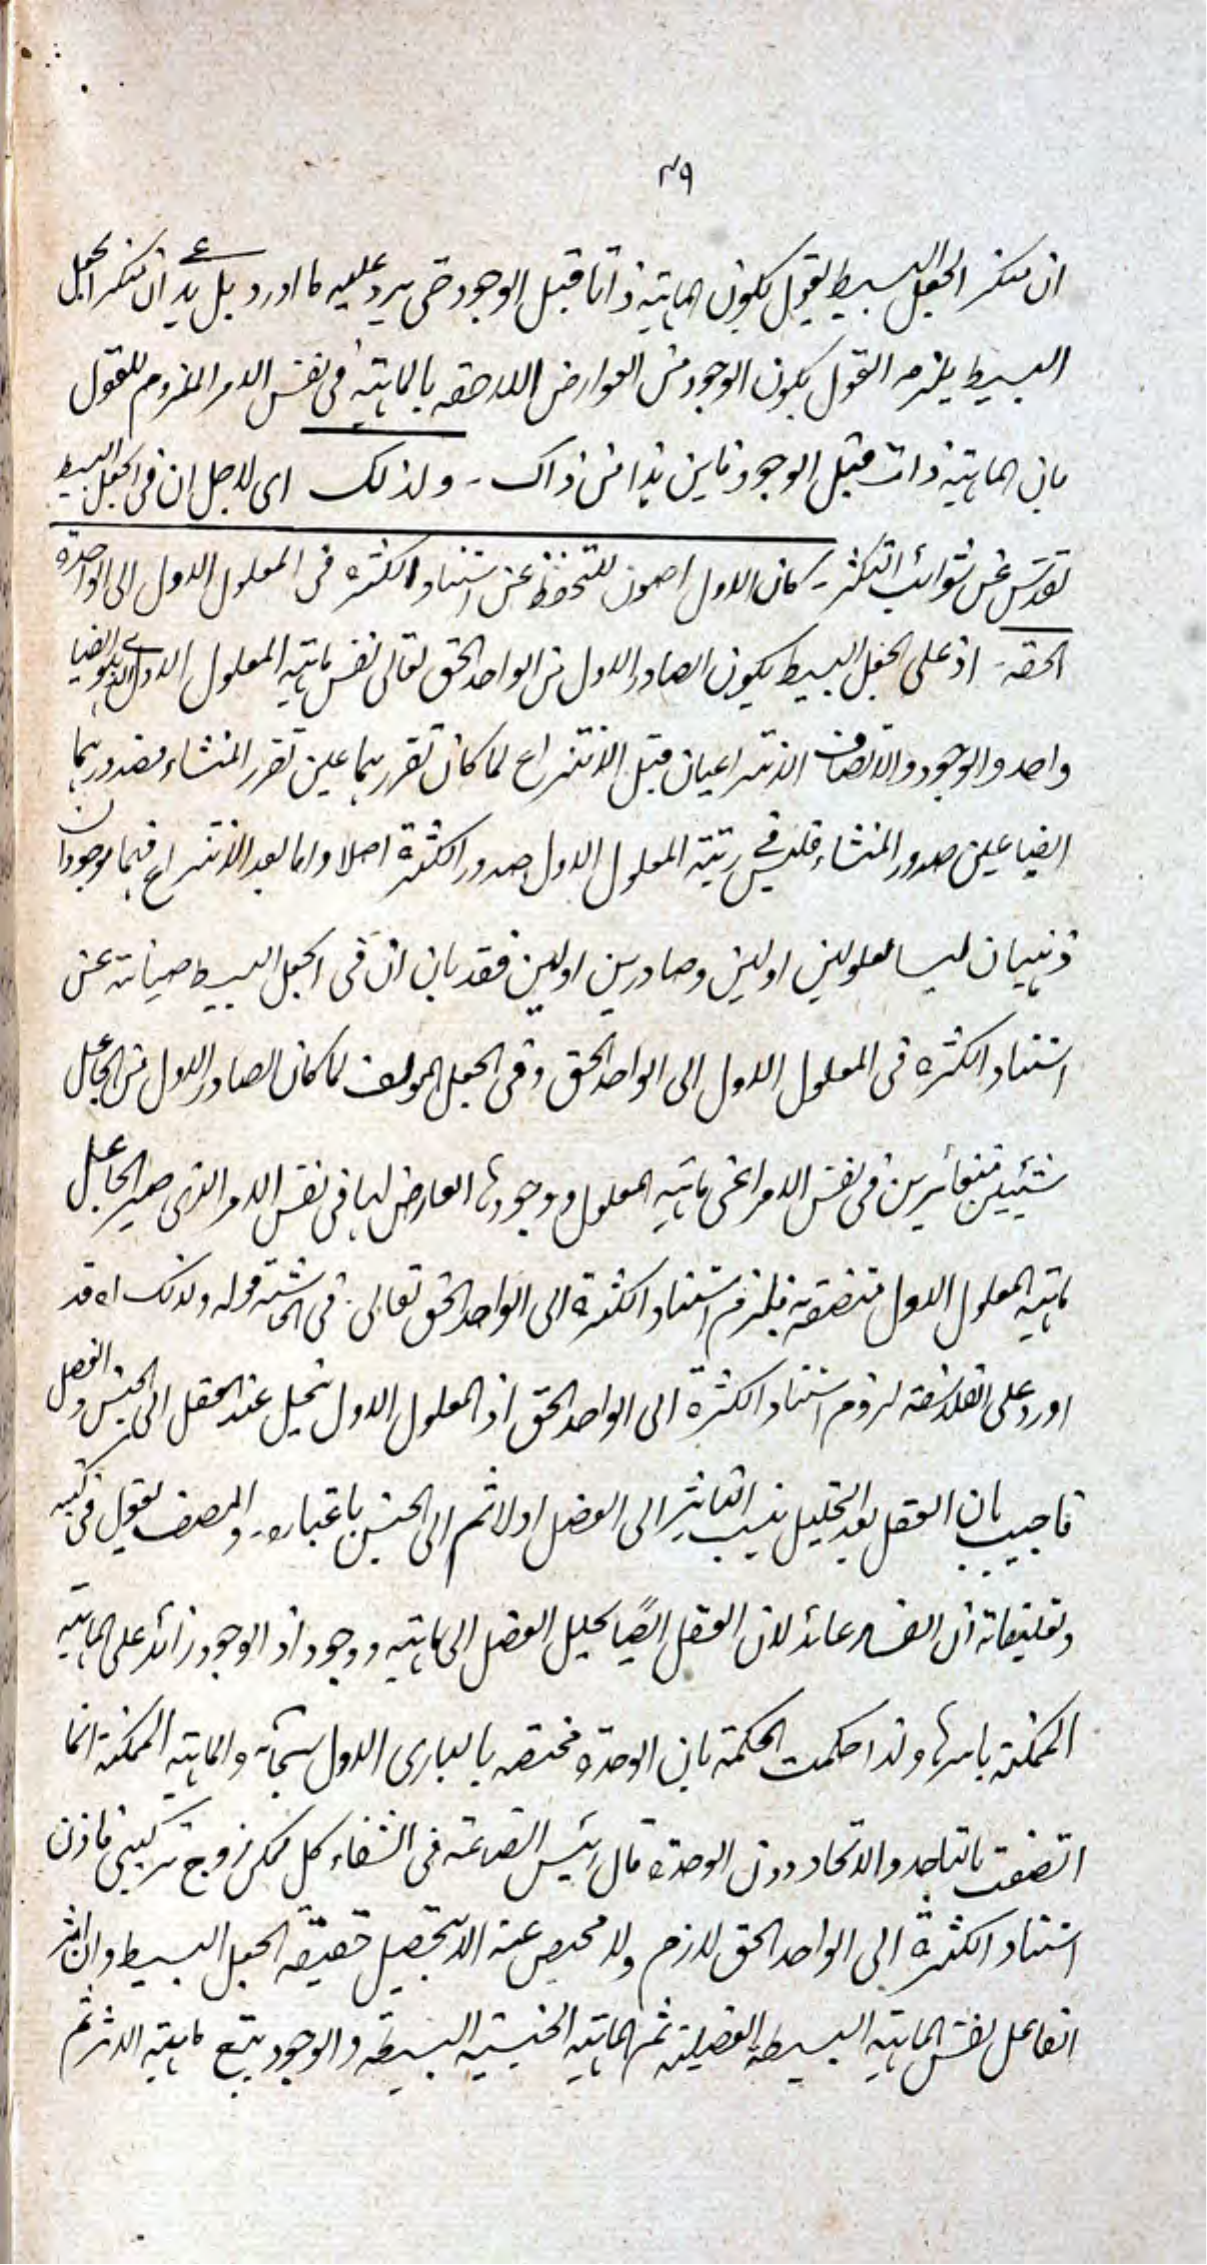 ۴۹
ان منكر الجعل البسيط يقول بكون الماهية ذاتا قبل الوجود حتى يرد عليه ما اورد بل يدعى ان منكر الجعل
البسيط يلزمه القول بكون الوجود من العوارض اللاحقه بالماهية فى نفس الامر الملزوم للقول
بان الماهية ذات قبل الوجود فاين هذا من ذاك - ولذلك اى لاجل ان فى الجعل البسيط
تقدس عن شوائب التكثر - كان الاول اصون للتحفظ عن استناد الكثره فى المعلول الاول الى الواحدة
الحقه - اذ على الجعل البسيط يكون الصادر الاول من الواحد الحق تعالى نفس ماهيه المعلول الاول الذى هو ايضا
واحد والوجود والاتصاف الانتزاعيان قبل الانتزاع لما كان تقررهما عين تقرر المنشاء فصدورهما
ايضا عين صدور المنشاء فليس فى رتبة المعلول الاول صدور الكثرة اصلا واما بعد الانتزاع فهما موجودان
ذهنيان ليسا معلولين اولين وصادرين اولين فقد بان ان فى الجعل البسيط صيانة عن
استناد الكثره فى المعلول الاول الى الواحد الحق وفى الجعل المولف لما كان الصادر الاول من الجاعل
شيئين متغائرين فى نفس الامر اعنى ماهيه المعلول ووجودها العارض لها فى نفس الامر الذى صير الجاعل
ماهيه المعلول الاول متصفة به فلزم استناد الكثرة الى الواحد الحق تعالى . فى الحاشية قوله ولذلك اه قد
اورد على الفلاسفه لزوم استناد الكثرة الى الواحد الحق اذ المعلول الاول ينحل عند العقل الى الجنس والفصل
فاجيب بان العقل بعد التحليل ينسب التاثير الى الفصل اولا ثم الى الجنس باعتباره - والمصنف يقول فى كتبه
وتعليقاته ان الفساد عائد لان العقل ايضًا يحلل الفصل الى ماهيه ووجود اذ الوجود زائد على الماهيه
الممكنة باسرها ولذا حكمت الحكمة بان الوحدة مختصه بالبارى الاول سبحانه والماهيه الممكنه انما
اتصفت بالتاحد والاتحاد دون الوحدة قال رئيس الصناعة فى الشفاء كل ممكن زوج تركيبى فاذن
استناد الكثرة الى الواحد الحق لازم ولا محيص عنه الا بتحصيل حقيقه الجعل البسيط وان اثر
الفاعل نفس الماهيه البسيطه الفصليه ثم الماهيه الجنسيه البسيطه والوجود يتبع ماهيه الاثر ثم